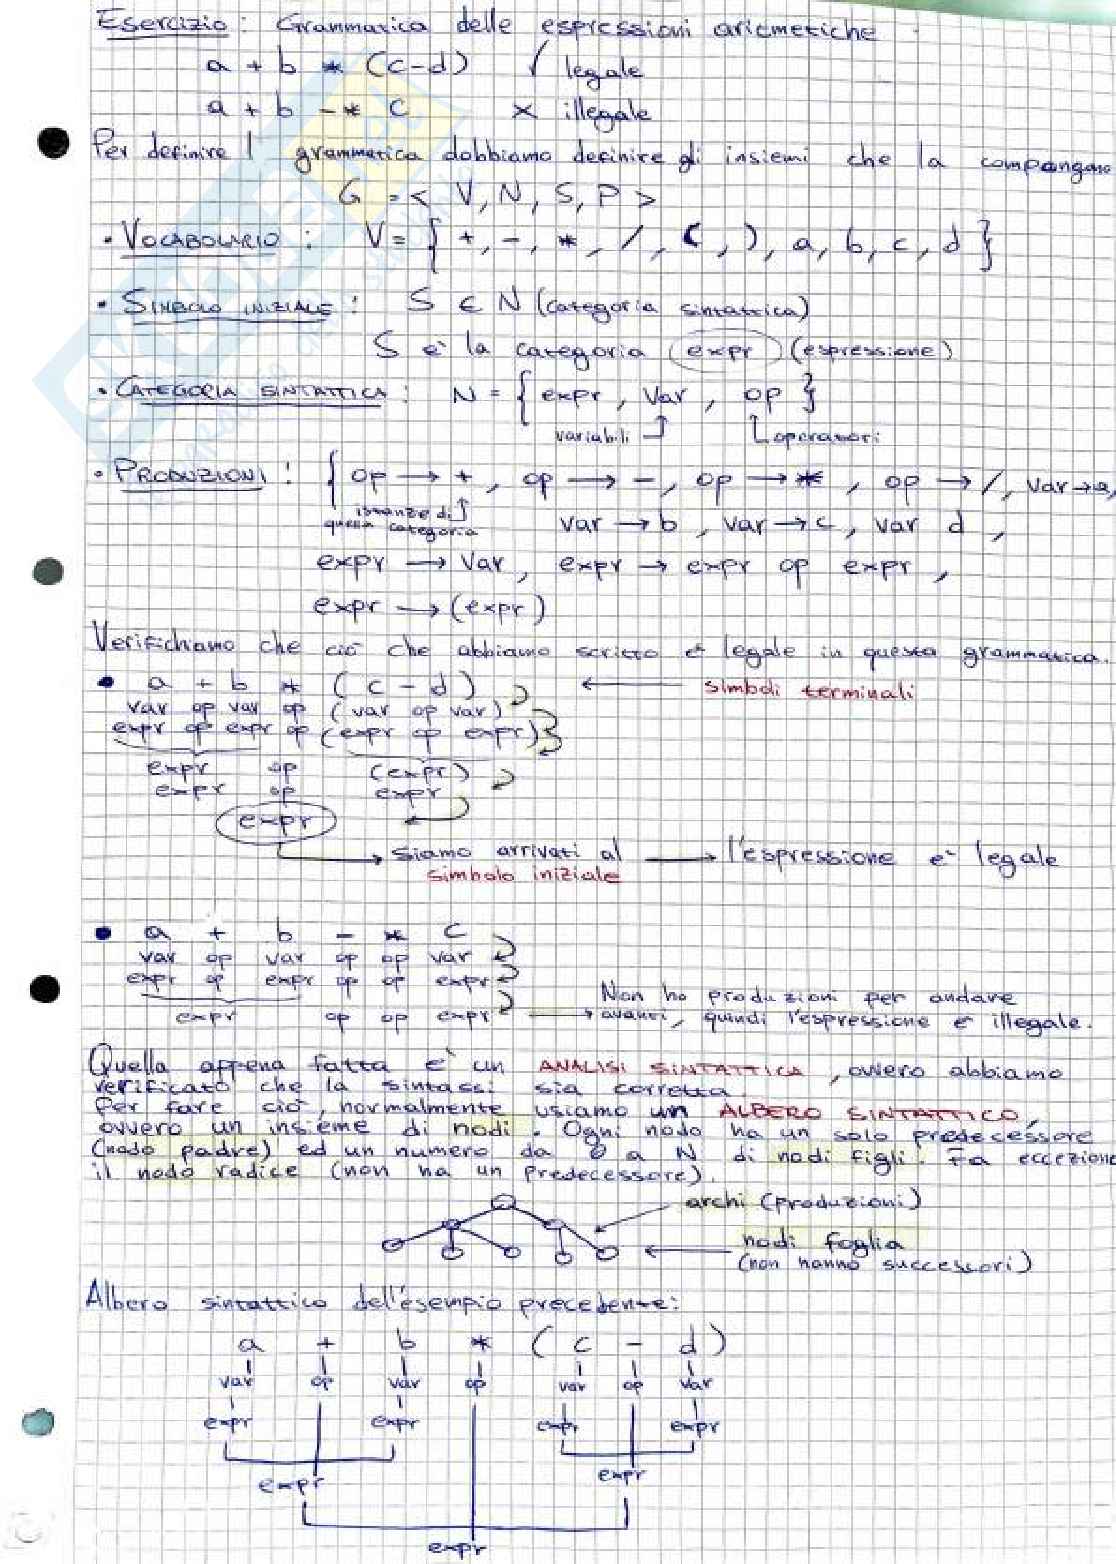 Esercizio: Grammatica delle espressioni aritmetiche
a + b * (c-d) √ legale
a + b - * c × illegale
Per definire l grammatica dobbiamo definire gli insiemi che la compongano
G = < V, N, S, P >
• VOCABOLARIO : V = { +, -, *, /, (, ), a, b, c, d }
• SIMBOLO INIZIALE : S ∈ N (categoria sintattica)
S è la categoria expr (espressione)
• CATEGORIA SINTATTICA : N = { expr, var, op }
variabili operatori
• PRODUZIONI : { op → +, op → -, op → *, op → /, var → a,
istanze di
questa categoria
var → b, var → c, var d,
expr → var, expr → expr op expr,
expr → (expr)
Verifichiamo che ciò che abbiamo scritto è legale in questa grammatica.
• a + b * ( c - d ) ← simboli terminali
var op var op (var op var)
expr op expr op (expr op expr)
expr op (expr)
expr op expr
expr
→ siamo arrivati al → l'espressione è legale
simbolo iniziale
• a + b - * c
var op var op op var
expr op expr op op expr
Non ho produzioni per andare
expr op op expr → avanti, quindi l'espressione è illegale.
Quella appena fatta è un ANALISI SINTATTICA, ovvero abbiamo
verificato che la sintassi sia corretta.
Per fare ciò, normalmente usiamo un ALBERO SINTATTICO,
ovvero un insieme di nodi. Ogni nodo ha un solo predecessore
(nodo padre) ed un numero da 0 a N di nodi figli. Fa eccezione
il nodo radice (non ha un predecessore).
archi (produzioni)
nodi foglia
(non hanno successori)
Albero sintattico dell'esempio precedente:
a + b * ( c - d )
var op var op var op var
expr expr expr expr
expr expr
expr